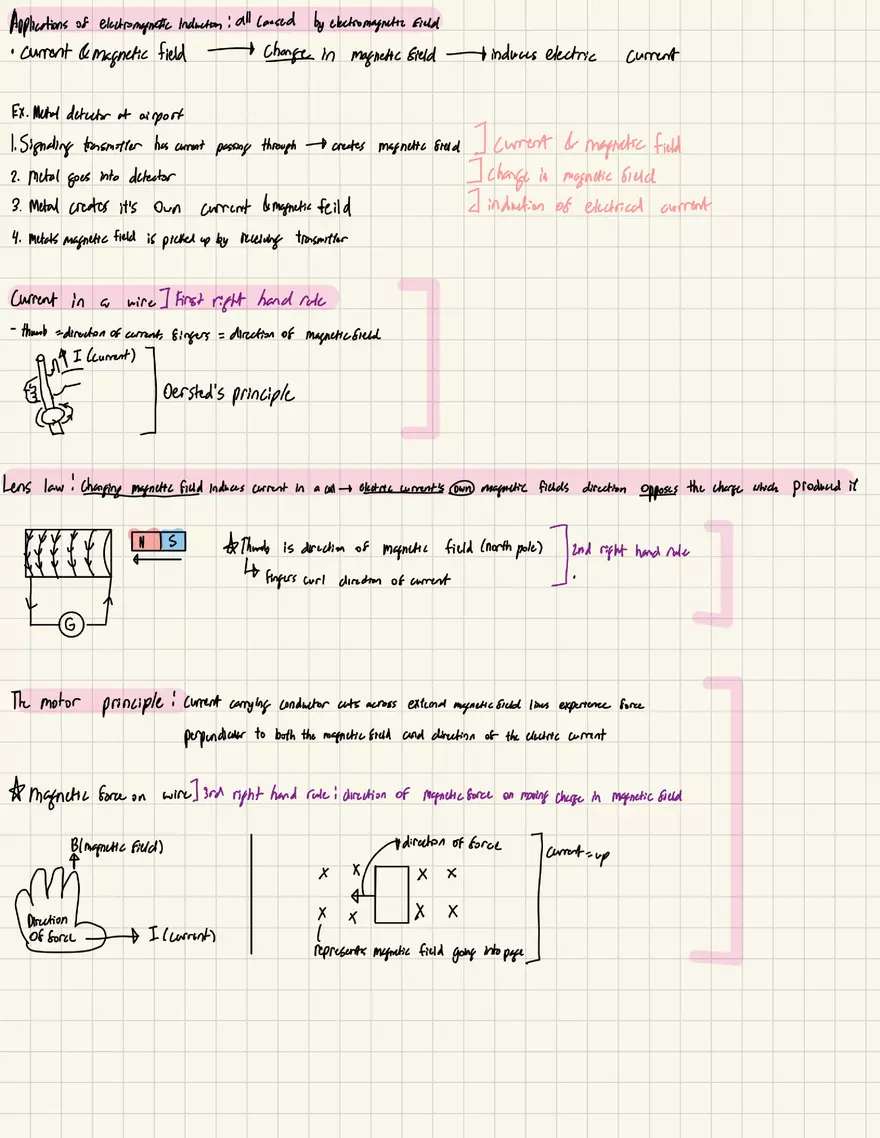 Applications of electromagnetic Induction: all caused by electromagnetic field
• Current & magnetic field → Change in magnetic field → induces electric current
Ex. Metal detector at airport
1. Signaling transmitter has current passing through → creates magnetic field ] Current & magnetic field
2. Metal goes into detector ] Change in magnetic field
3. Metal creates it's own current & magnetic feild ] induction of electrical current
4. Metals magnetic field is picked up by receiving transmitter
Current in a wire ] First right hand rule
- thumb = direction of current, fingers = direction of magnetic field
I (current)
Oersted's principle
Lens law: Changing magnetic field induces current in a coil → electric current's own magnetic fields direction opposes the charge which produced it
N S
☆ Thumb is direction of magnetic field (north pole) ] 2nd right hand rule
↳ Fingers curl direction of current
G
The motor principle: Current carrying conductor cuts across external magnetic field lines experience force
perpendicular to both the magnetic field and direction of the electric current
☆ Magnetic force on wire ] 3rd right hand rule: direction of magnetic force on moving charge in magnetic field
B(magnetic field)
Direction
Of force
→ I (current)
direction of force
Current = up
x x x x
x x x x
represents magnetic field going into page